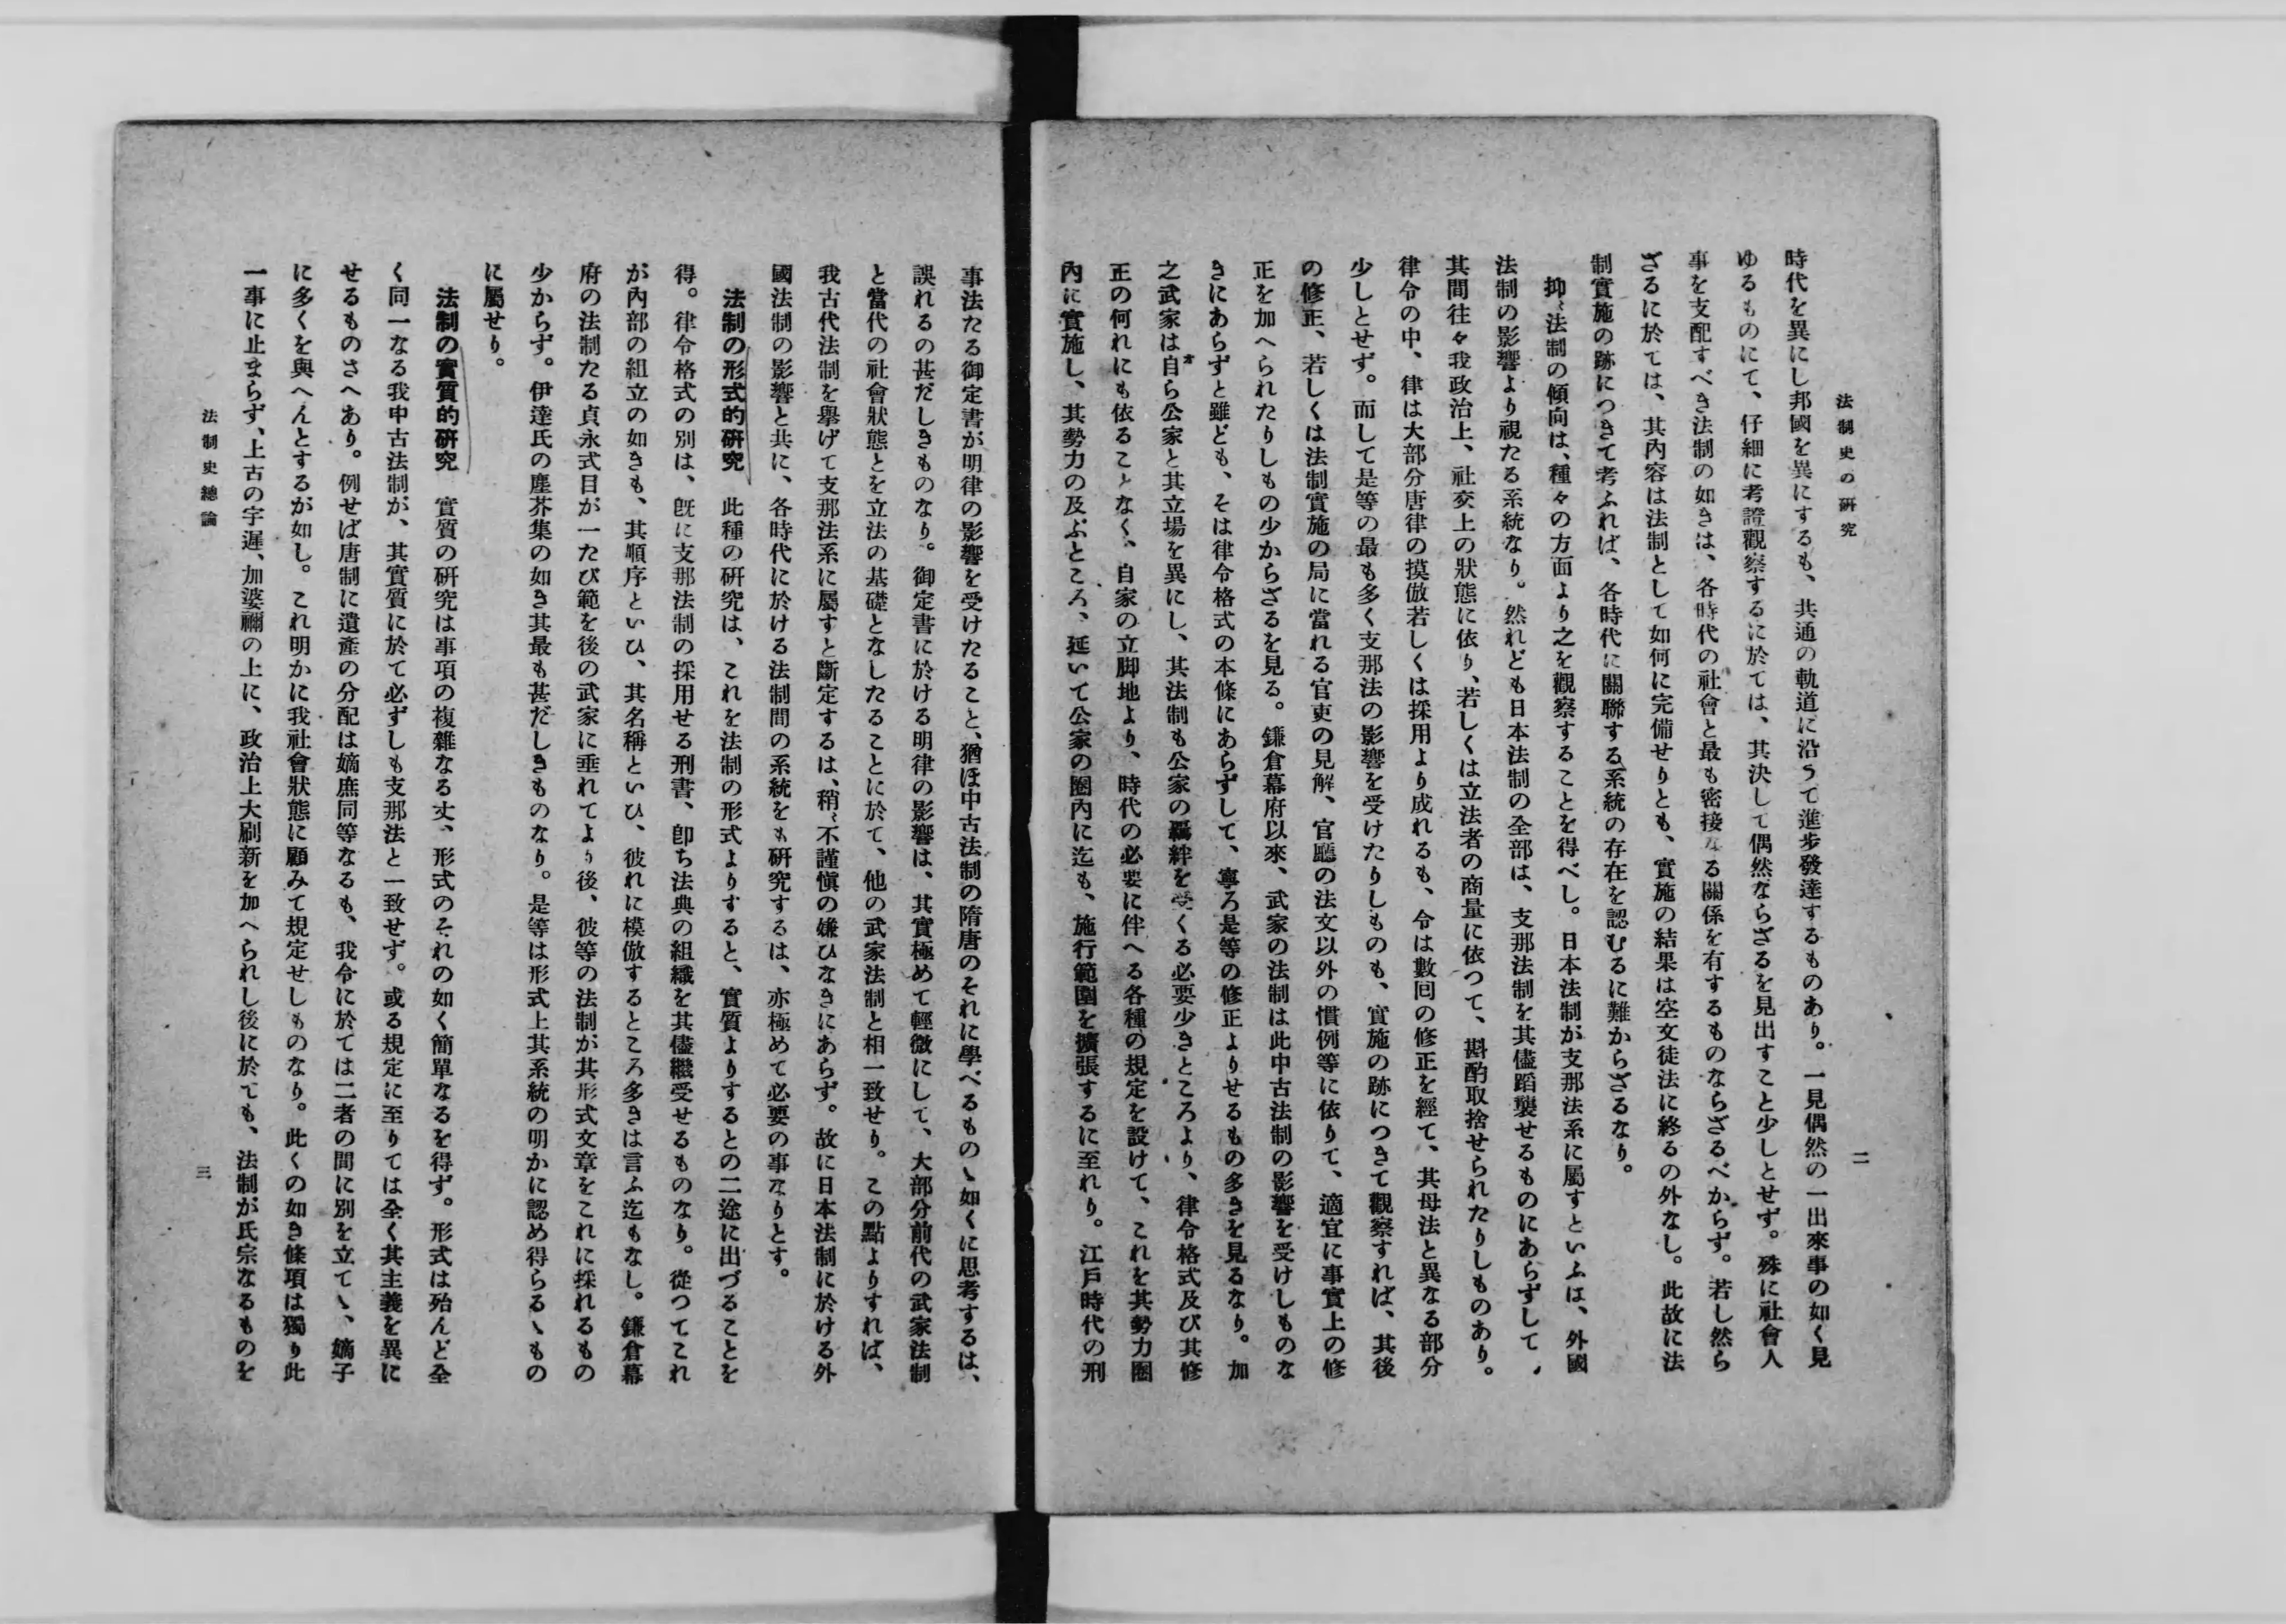 法制史の研究
二
時代を異にし邦國を異にするも、共通の軌道に沿うて進步發達するものあり。一見偶然の一出來事の如く見
ゆるものにて、仔細に考證觀察するに於ては、其決して偶然ならざるを見出すこと少しとせず。殊に社會人
事を支配すべき法制の如きは、各時代の社會と最も密接なる關係を有するものならざるべからず。若し然ら
ざるに於ては、其內容は法制として如何に完備せりとも、實施の結果は空文徒法に終るの外なし。此故に法
制實施の跡につきて考ふれば、各時代に關聯する系統の存在を認むるに難からざるなり。
抑〻法制の傾向は、種々の方面より之を觀察することを得べし。日本法制が支那法系に屬すといふは、外國
法制の影響より視たる系統なり。然れども日本法制の全部は、支那法制を其儘蹈襲せるものにあらずして、
其間往々我政治上、社交上の狀態に依り、若しくは立法者の商量に依つて、斟酌取捨せられたりしものあり。
律令の中、律は大部分唐律の摸倣若しくは採用より成れるも、令は數囘の修正を經て、其母法と異なる部分
少しとせず。而して是等の最も多く支那法の影響を受けたりしものも、實施の跡につきて觀察すれば、其後
の修正、若しくは法制實施の局に當れる官吏の見解、官廳の法文以外の慣例等に依りて、適宜に事實上の修
正を加へられたりしもの少からざるを見る。鎌倉幕府以來、武家の法制は此中古法制の影響を受けしものな
きにあらずと雖ども、そは律令格式の本條にあらずして、寧ろ是等の修正よりせるもの多きを見るなり。加
之武家は自ら公家と其立場を異にし、其法制も公家の羈絆を受くる必要少きところより、律令格式及び其修
正の何れにも依ることなく、自家の立脚地より、時代の必要に伴へる各種の規定を設けて、これを其勢力圈
內に實施し、其勢力の及ぶところ、延いて公家の圈內に迄も、施行範圍を擴張するに至れり。江戶時代の刑
事法たる御定書が明律の影響を受けたること、猶ほ中古法制の隋唐のそれに學べるものゝ如くに思考するは、
誤れるの甚だしきものなり。御定書に於ける明律の影響は、其實極めて輕微にして、大部分前代の武家法制
と當代の社會狀態とを立法の基礎となしたることに於て、他の武家法制と相一致せり。この點よりすれば、
我古代法制を擧げて支那法系に屬すと斷定するは、稍〻不謹愼の嫌ひなきにあらず。故に日本法制に於ける外
國法制の影響と共に、各時代に於ける法制間の系統をも研究するは、亦極めて必要の事なりとす。
法制の形式的硏究　此種の硏究は、これを法制の形式よりすると、實質よりするとの二途に出づることを
得。律令格式の別は、旣に支那法制の採用せる刑書、卽ち法典の組織を其儘繼受せるものなり。從つてこれ
が內部の組立の如きも、其順序といひ、其名稱といひ、彼れに模倣するところ多きは言ふ迄もなし。鎌倉幕
府の法制たる貞永式目が一たび範を後の武家に垂れてより後、彼等の法制が其形式文章をこれに採れるもの
少からず。伊達氏の塵芥集の如き其最も甚だしきものなり。是等は形式上其系統の明かに認め得らるゝもの
に屬せり。
法制の實質的硏究　實質の硏究は事項の複雜なる丈、形式のそれの如く簡單なるを得ず。形式は殆んど全
く同一なる我中古法制が、其實質に於て必ずしも支那法と一致せず。或る規定に至りては全く其主義を異に
せるものさへあり。例せば唐制に遺產の分配は嫡庶同等なるも、我令に於ては二者の間に別を立てゝ、嫡子
に多くを與へんとするが如し。これ明かに我社會狀態に顧みて規定せしものなり。此くの如き條項は獨り此
一事に止まらず、上古の宇遲、加婆禰の上に、政治上大刷新を加へられし後に於ても、法制が氏宗なるものを
法制史總論
三